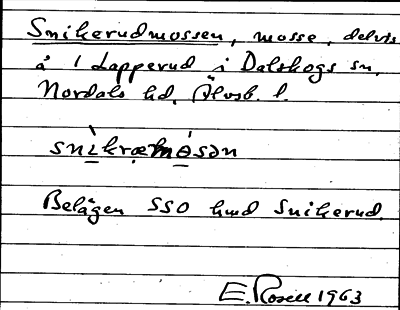 Snikerudmossen, mosse, delvis
å 1 Lapperud i Dalskogs sn,
Nordals hd, Älvsb. l.
snìkræmósən
Belägen SSO hmd Snikerud.
E. Rosell 1963